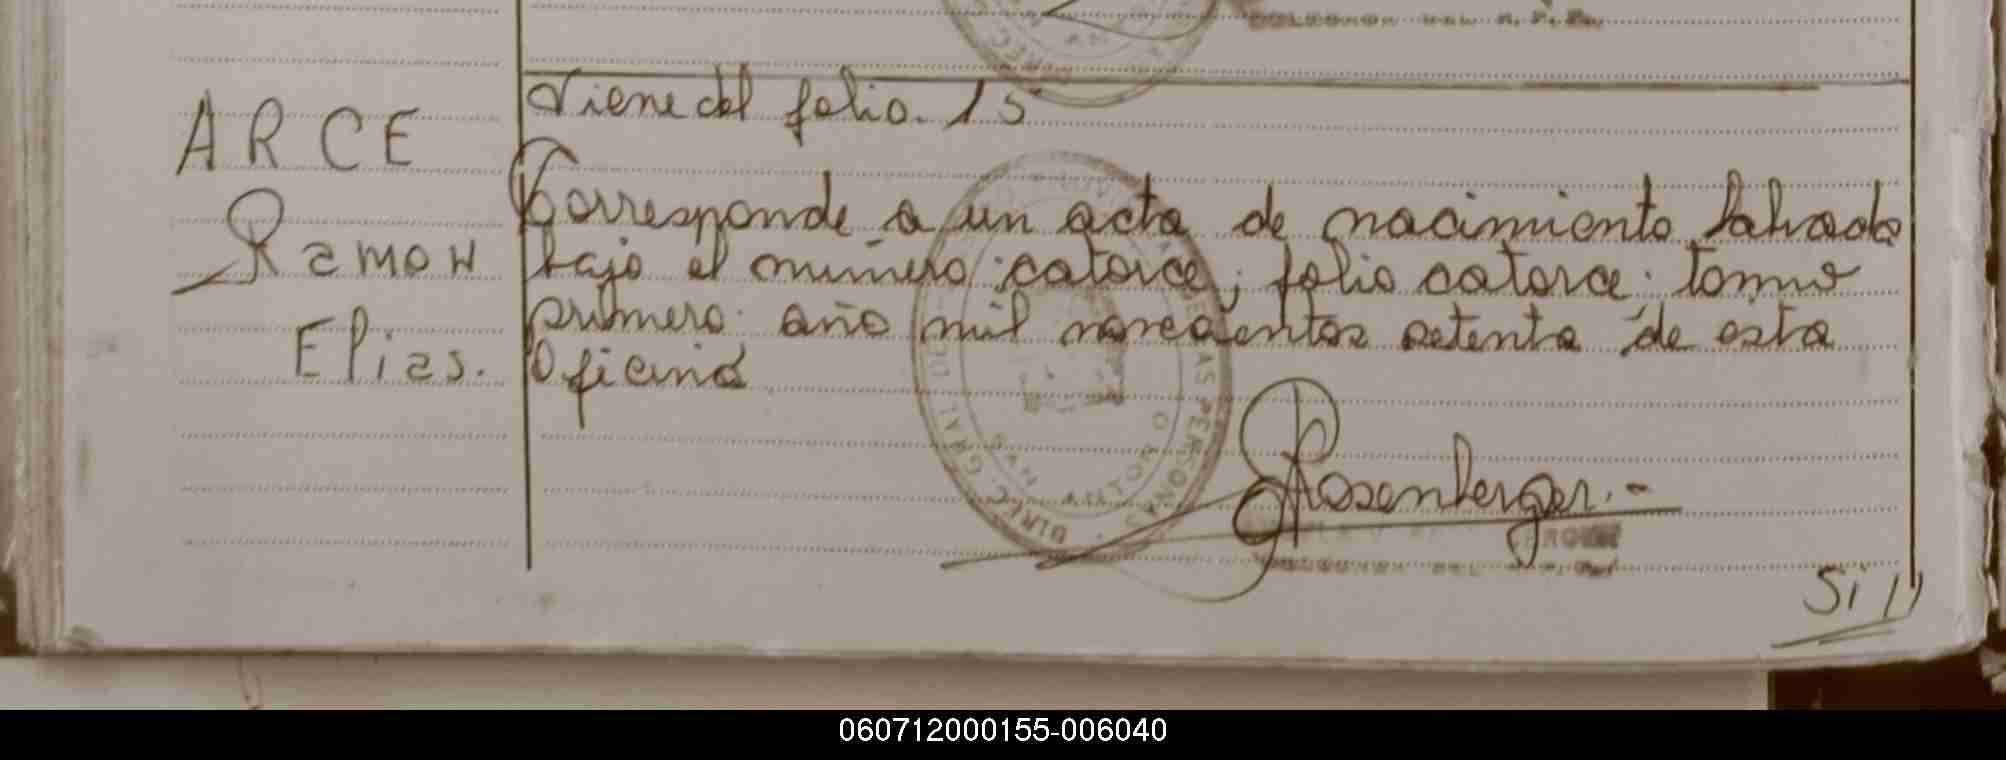 COLEGRAR DEL R.P.P.
Viene del folio 15
ARCE
Ramon
Elias.
Corresponde a un acta de nacimiento labrada
bajo el número catorce; folio catorce. tomo
primero. año mil novecientos setenta de esta
Oficina
DIREC. GRAL. DE LAS PERSONAS
SAN ANTONIO
Rosenberger.-
Si //
060712000155-006040